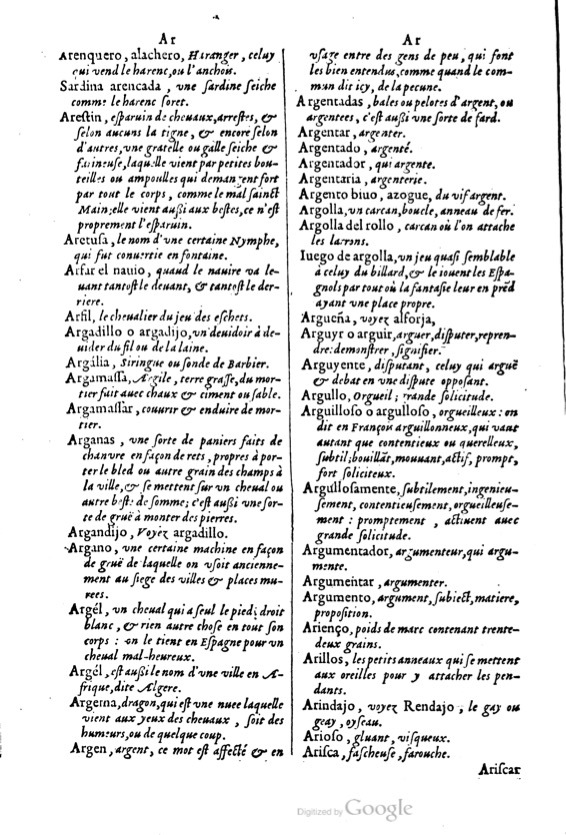 Ar
Arenquero, alachero, Haranger, celuy
qui vend le harenc, ou l'anchou.
Sardina arencada, vne sardine seiche
comme le harenc soret.
Arestin, esparuin de cheuaux, arrestes, &
selon aucuns la tigne, & encore selon
d'autres, vne gratelle ou galle seiche &
farineuse, laquelle vient par petites bou-
teilles ou ampoulles qui demangent fort
par tout le corps, comme le mal sainct
Main; elle vient aussi aux bestes, ce n'est
proprement l'esparuin.
Aretusa, le nom d'vne certaine Nymphe,
qui fut conuertie en fontaine.
Arfar el nauio, quand le nauire va le-
uant tantost le deuant, & tantost le der-
riere.
Arfil, le cheualier du jeu des eschets.
Argadillo o argadijo, vn deuidoir à de-
uider du fil ou de la laine.
Argália, Siringue ou sonde de Barbier.
Argamassa, Argile, terre grasse, du mor-
tier fait auec chaux & ciment ou sable.
Argamassar, couurir & enduire de mor-
tier.
Arganas, vne sorte de paniers faits de
chanvre en façon de rets, propres à por-
ter le bled ou autre grain des champs à
la ville, & se mettent sur vn cheual ou
autre beste de somme; c'est aussi vne sor-
te de gruë à monter des pierres.
Argandijo, Voyez argadillo.
Argano, vne certaine machine en façon
de gruë de laquelle on vsoit ancienne-
ment au siege des villes & places mu-
rees.
Argél, vn cheual qui a seul le pied droit
blanc, & rien autre chose en tout son
corps: on le tient en Espagne pour vn
cheual mal-heureux.
Argél, est aussi le nom d'vne ville en A-
frique, dite Algere.
Argema, dragon, qui est vne nuee laquelle
vient aux yeux des cheuaux, soit des
humeurs, ou de quelque coup.
Argen, argent, ce mot est affecté & en
Ar
vsage entre des gens de peu, qui font
les bien entendus, comme quand le com-
mun dit icy, de la pecune.
Argentadas, bales ou pelotes d'argent, ou
argentees, c'est aussi vne sorte de fard.
Argentar, argenter.
Argentado, argenté.
Argentador, qui argente.
Argentaria, argenterie.
Argento biuo, azogue, du vif argent.
Argolla, vn carcan, boucle, anneau de fer.
Argolla del rollo, carcan où l'on attache
les larrons.
Iuego de argolla, vn jeu quasi semblable
à celuy du billard, & le iouent les Espa-
gnols par tout où la fantasie leur en prēd
ayant vne place propre.
Argueña, voyez alforja,
Arguyr o arguir, arguer, disputer, repren-
dre: demonstrer, signifier.
Arguyente, disputant, celuy qui arguë
& debat en vne dispute opposant.
Argullo, Orgueil; grande solicitude.
Arguilloso o argulloso, orgueilleux: on
dit en François arguillonneux, qui vaut
autant que contentieux ou querelleux,
subtil; bouillāt, mouuant, actif, prompt,
fort soliciteux.
Argullosamente, subtilement, ingenieu-
sement, contentieusement, orgueilleuse-
ment: promptement, actiuent auec
grande solicitude.
Argumentador, argumenteur, qui argu-
mente.
Argumentar, argumenter.
Argumento, argument, subiect, matiere,
proposition.
Arienço, poids de marc contenant trente-
deux grains.
Arillos, les petits anneaux qui se mettent
aux oreilles pour y attacher les pen-
dants.
Arindajo, voyez Rendajo, le gay ou
geay, oyseau.
Arioso, gluant, visqueux.
Arisca, fascheuse, farouche.
Ariscar
Digitized by Google